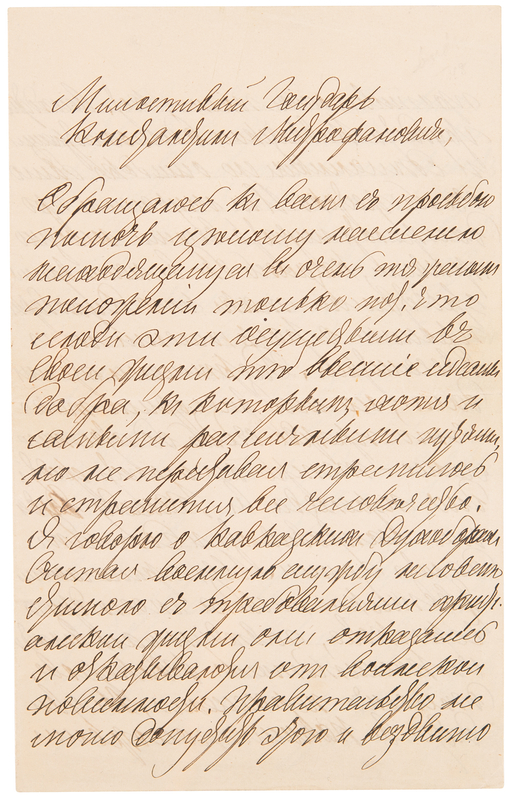 Милостивый Государь
Константин Митрофанович,
Обращаюсь къ вамъ съ просьбою
помочь цѣлому населенію
находящемуся въ очень тяжеломъ
положеніи только п. ч. что
люди эти осуществили въ
своей жизни тѣ высшіе идеалы
добра, къ которымъ хотя и
самыми различными путями,
но не переставая стремилось
и стремится все человѣчество.
Я говорю о кавказскихъ Духоборахъ
Считая военную службу несовмѣ
стимою съ требованіями христі
анской жизни они отказались
и отказываются отъ воинской
повинности. Правительство не
могло допустить этого и воздвигло